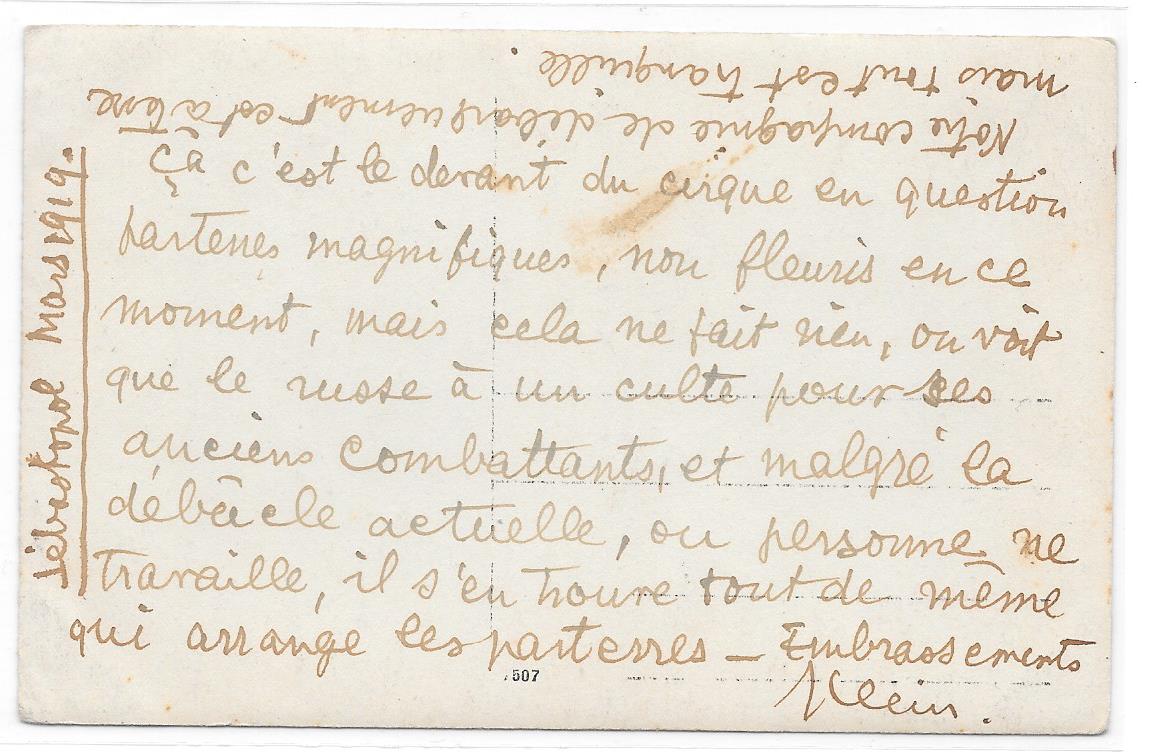 Sébastopol Mars 1919.
Ça c'est le devant du cirque en question
parterres magnifiques, non fleuris en ce
moment, mais cela ne fait rien, on voit
que le russe à un culte pour ses
anciens combattants, et malgré la
débâcle actuelle, ou personne ne
travaille, il s'en trouve tout de même
qui arrange les parterres — Embrassements
Klein.
Notre compagnie de débarquement est à terre
mais tout est tranquille.
507